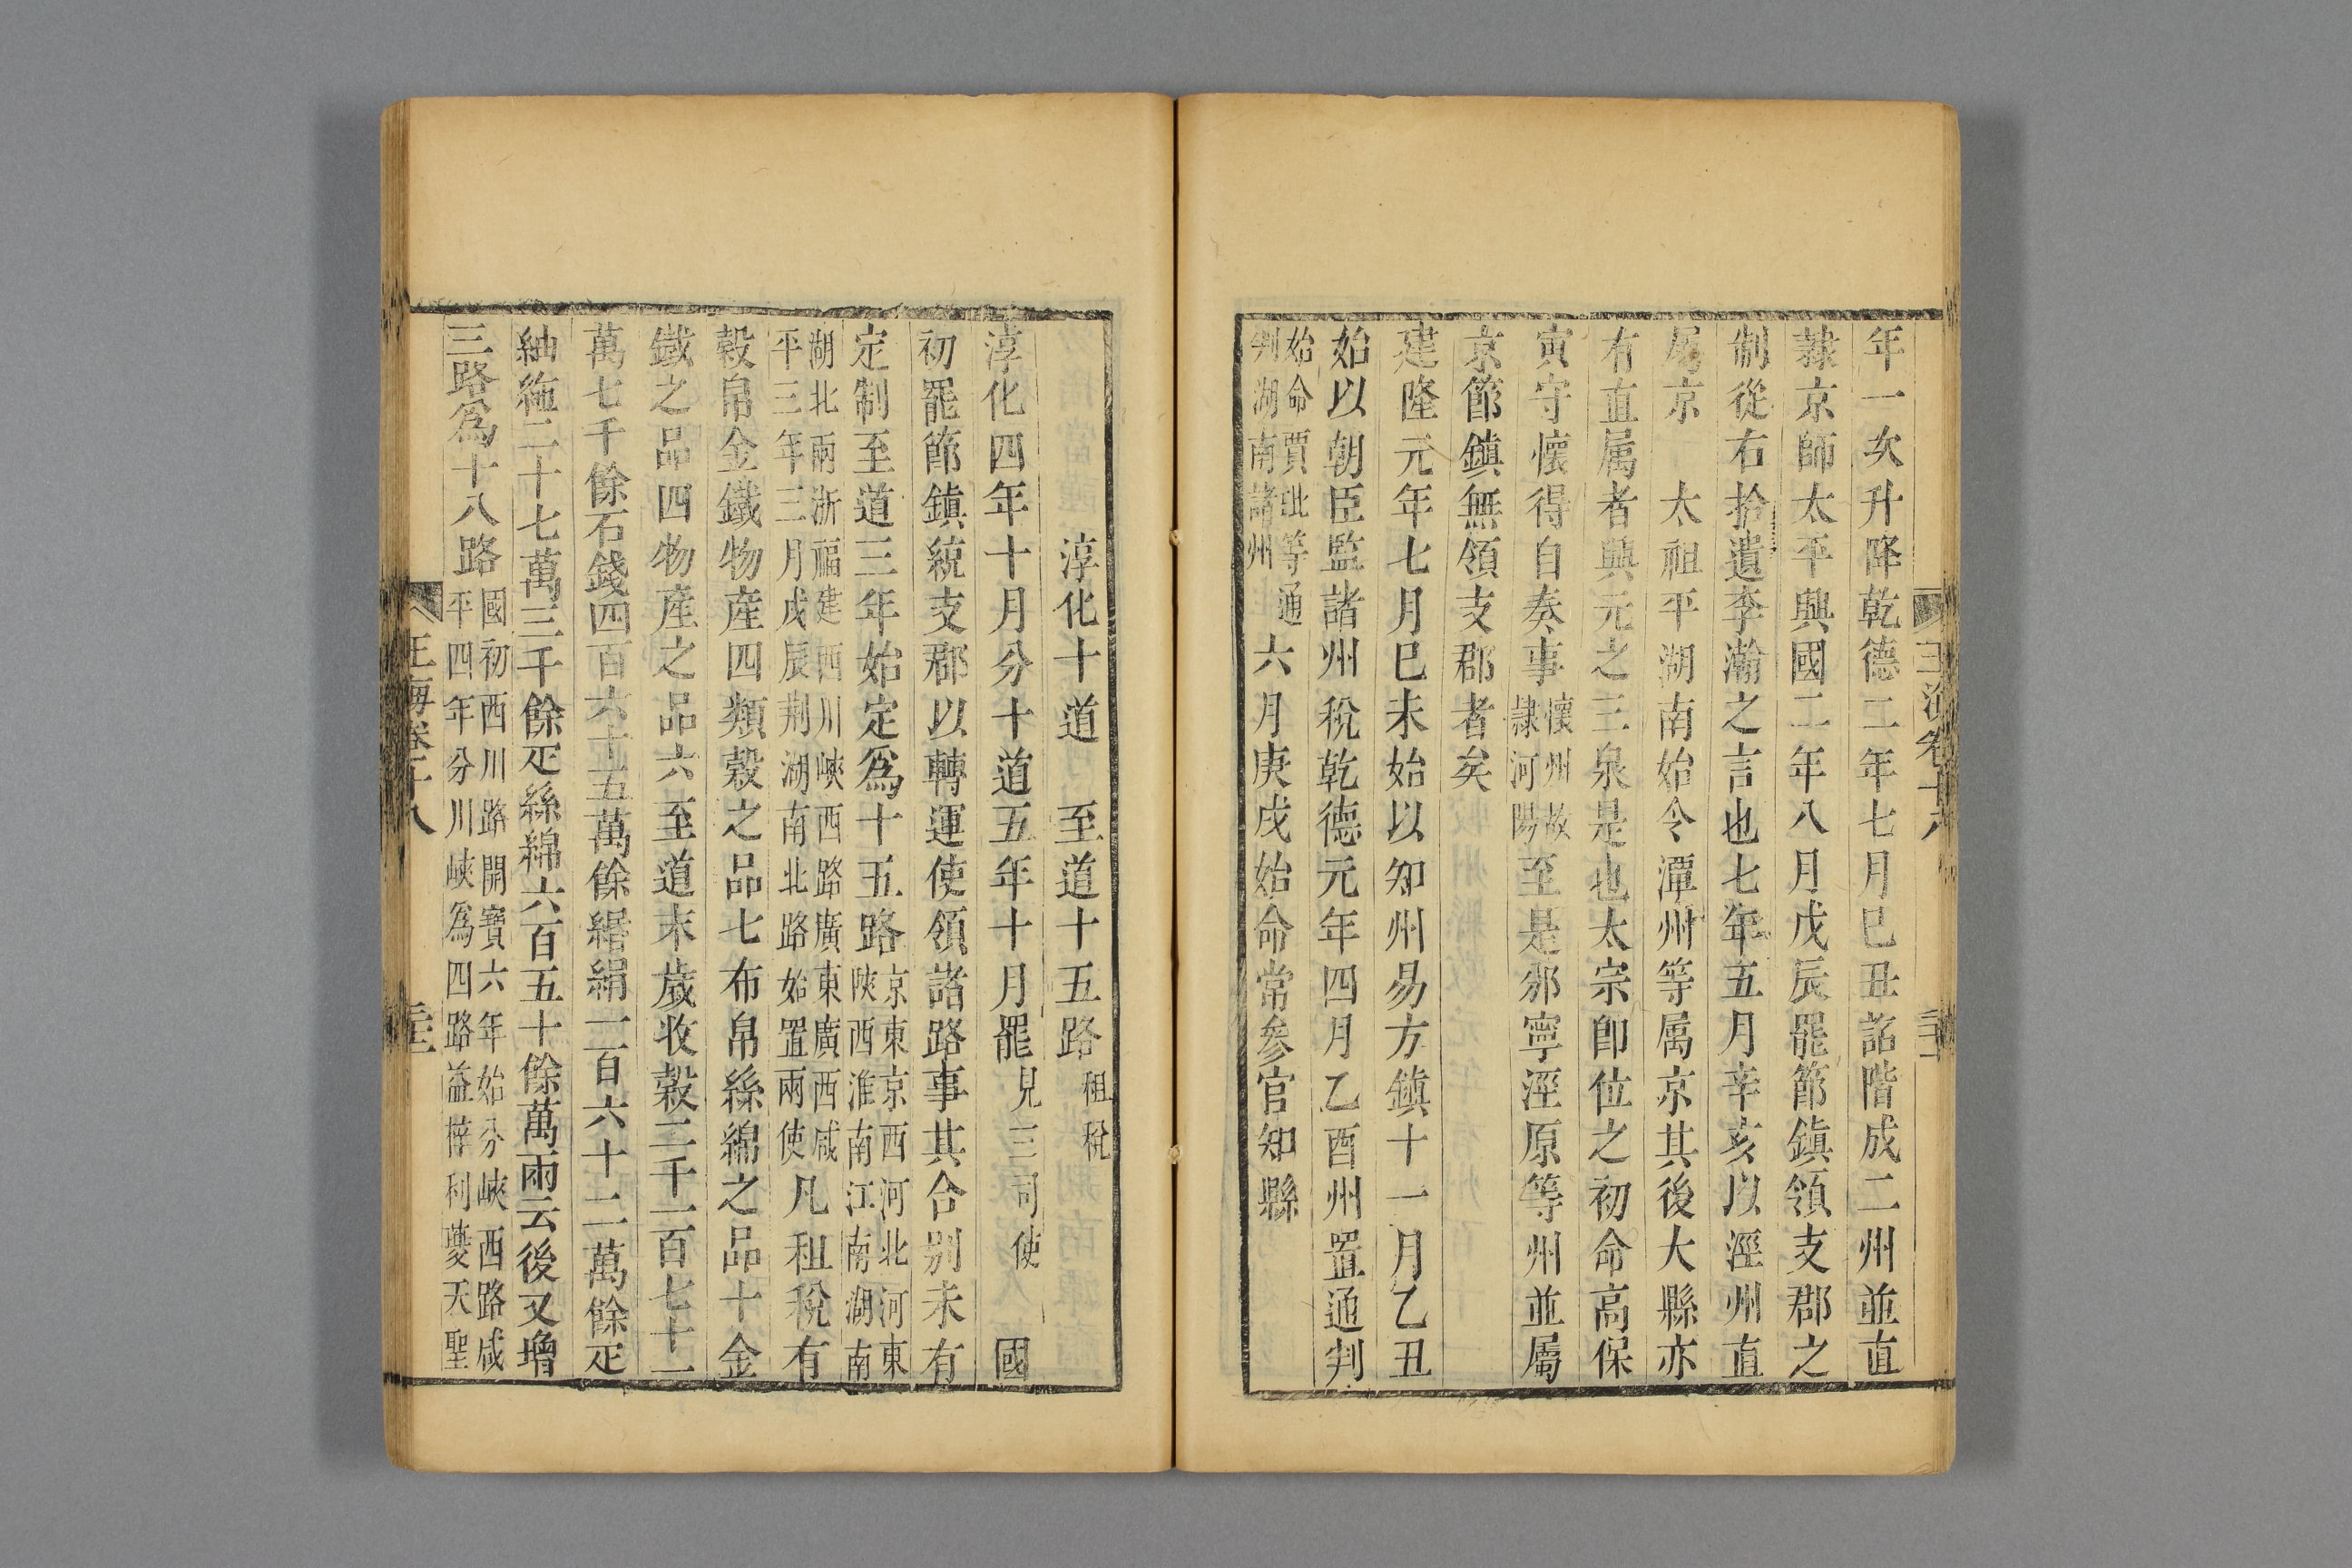 年一次升降乾德二年七月巳丑詔階成二州並直
隸京師太平興國二年八月戊辰罷節鎮領支郡之
制從右拾遺李瀚之言也七年五月辛亥以涇州直
屬京　太祖平湖南始令潭州等属京其後大縣亦
有直属者興元之三泉是也太宗卽位之初命高保
寅守懷得自奏事懷州故隷河陽至是邠寧涇原等州並屬
京節鎮無領支郡者矣
建隆元年七月巳未始以知州易方鎮十一月乙丑
始以朝臣監諸州稅乾德元年四月乙酉州置通判
始命賈玭等通判湖南諸州六月庚戌始命常參官知縣
淳化十道　至道十五路租稅
淳化四年十月分十道五年十月罷見三司使　國
初罷節鎮統支郡以轉運使領諸路事其合别未有
定制至道三年始定爲十五路京東京西河北河東陝西淮南江南湖南
湖北兩浙福建西川峽西路廣東廣西咸平三年三月戊辰荆湖南北路始置兩使凡租稅有
穀帛金鐵物産四類穀之品七布帛絲綿之品十金
鐵之品四物産之品六至道末歲收穀二千一百七十一
萬七千餘石錢四百六十五萬餘緡絹一百六十二萬餘疋
紬絁二十七萬三千餘疋絲綿六百五十餘萬兩云後又增
三路爲十八路國初西川路開寶六年始分峽西路咸平四年分川峽爲四路益梓利夔天聖
玉海卷十八